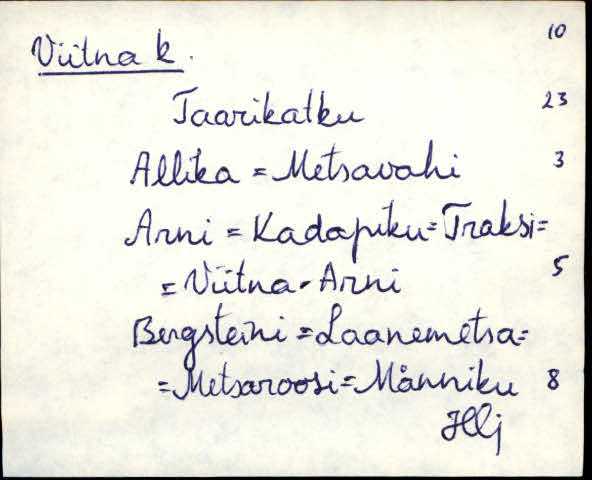 10
Viitna k.
Taarikatku 23
Allika = Metsavahi 3
Arni = Kadapiku = Traksi =
= Viitna-Arni 5
Bergsteini = Laanemetsa =
= Metsaroosi = Männiku 8
Hlj